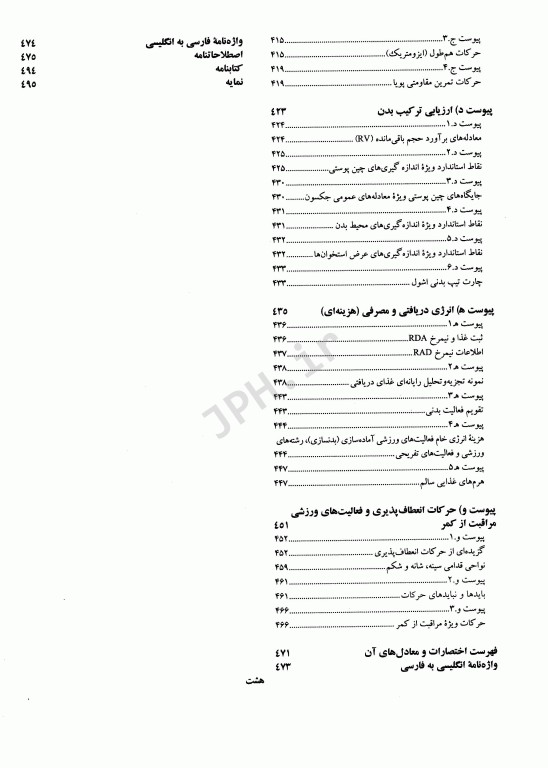 پیوست ج.۳ ........ ۴۱۵
حرکات هم‌طول (ایزومتریک) ........ ۴۱۵
پیوست ج.۴ ........ ۴۱۹
حرکات تمرین مقاومتی پویا ........ ۴۱۹
پیوست د) ارزیابی ترکیب بدن ۴۲۳
پیوست د.۱ ........ ۴۲۴
معادله‌های برآورد حجم باقی‌مانده (RV) ........ ۴۲۴
پیوست د.۲ ........ ۴۲۵
نقاط استاندارد ویژهٔ اندازه گیری‌های چین پوستی ........ ۴۲۵
پیوست د.۳ ........ ۴۳۰
جایگاه‌های چین پوستی ویژهٔ معادله‌های عمومی جکسون ........ ۴۳۰
پیوست د.۴ ........ ۴۳۱
نقاط استاندارد ویژهٔ اندازه‌گیری‌های محیط بدن ........ ۴۳۱
پیوست د.۵ ........ ۴۳۲
نقاط استاندارد ویژهٔ اندازه‌گیری‌های عرض استخوان‌ها ........ ۴۳۲
پیوست د.۶ ........ ۴۳۳
چارت تیپ بدنی اشول ........ ۴۳۳
پیوست ه) انرژی دریافتی و مصرفی (هزینه‌ای) ۴۳۵
پیوست ه‍.۱ ........ ۴۳۶
ثبت غذا و نیمرخ RDA ........ ۴۳۶
اطلاعات نیمرخ RAD ........ ۴۳۷
پیوست ه‍.۲ ........ ۴۳۸
نمونه تجزیه‌وتحلیل رایانه‌ای غذای دریافتی ........ ۴۳۸
پیوست ه‍.۳ ........ ۴۴۳
تقویم فعالیت بدنی ........ ۴۴۳
پیوست ه‍.۴ ........ ۴۴۴
هزینهٔ انرژی خام فعالیت‌های ورزشی آماده‌سازی (بدنسازی)، رشته‌های
ورزشی و فعالیت‌های تفریحی ........ ۴۴۴
پیوست ه‍.۵ ........ ۴۴۷
هرم‌های غذایی سالم ........ ۴۴۷
پیوست و) حرکات انعطاف‌پذیری و فعالیت‌های ورزشی
مراقبت از کمر ۴۵۱
پیوست و.۱ ........ ۴۵۲
گزیده‌ای از حرکات انعطاف‌پذیری ........ ۴۵۲
نواحی قدامی سینه، شانه و شکم ........ ۴۵۹
پیوست و.۲ ........ ۴۶۱
بایدها و نبایدهای حرکات ........ ۴۶۱
پیوست و.۳ ........ ۴۶۶
حرکات ویژهٔ مراقبت از کمر ........ ۴۶۶
فهرست اختصارات و معادل‌های آن ۴۷۱
واژه‌نامهٔ انگلیسی به فارسی ۴۷۳
واژه‌نامهٔ فارسی به انگلیسی ۴۷۴
اصطلاحاتنامه ۴۷۵
کتابنامه ۴۹۴
نمایه ۴۹۵
هشت
JPH.ir